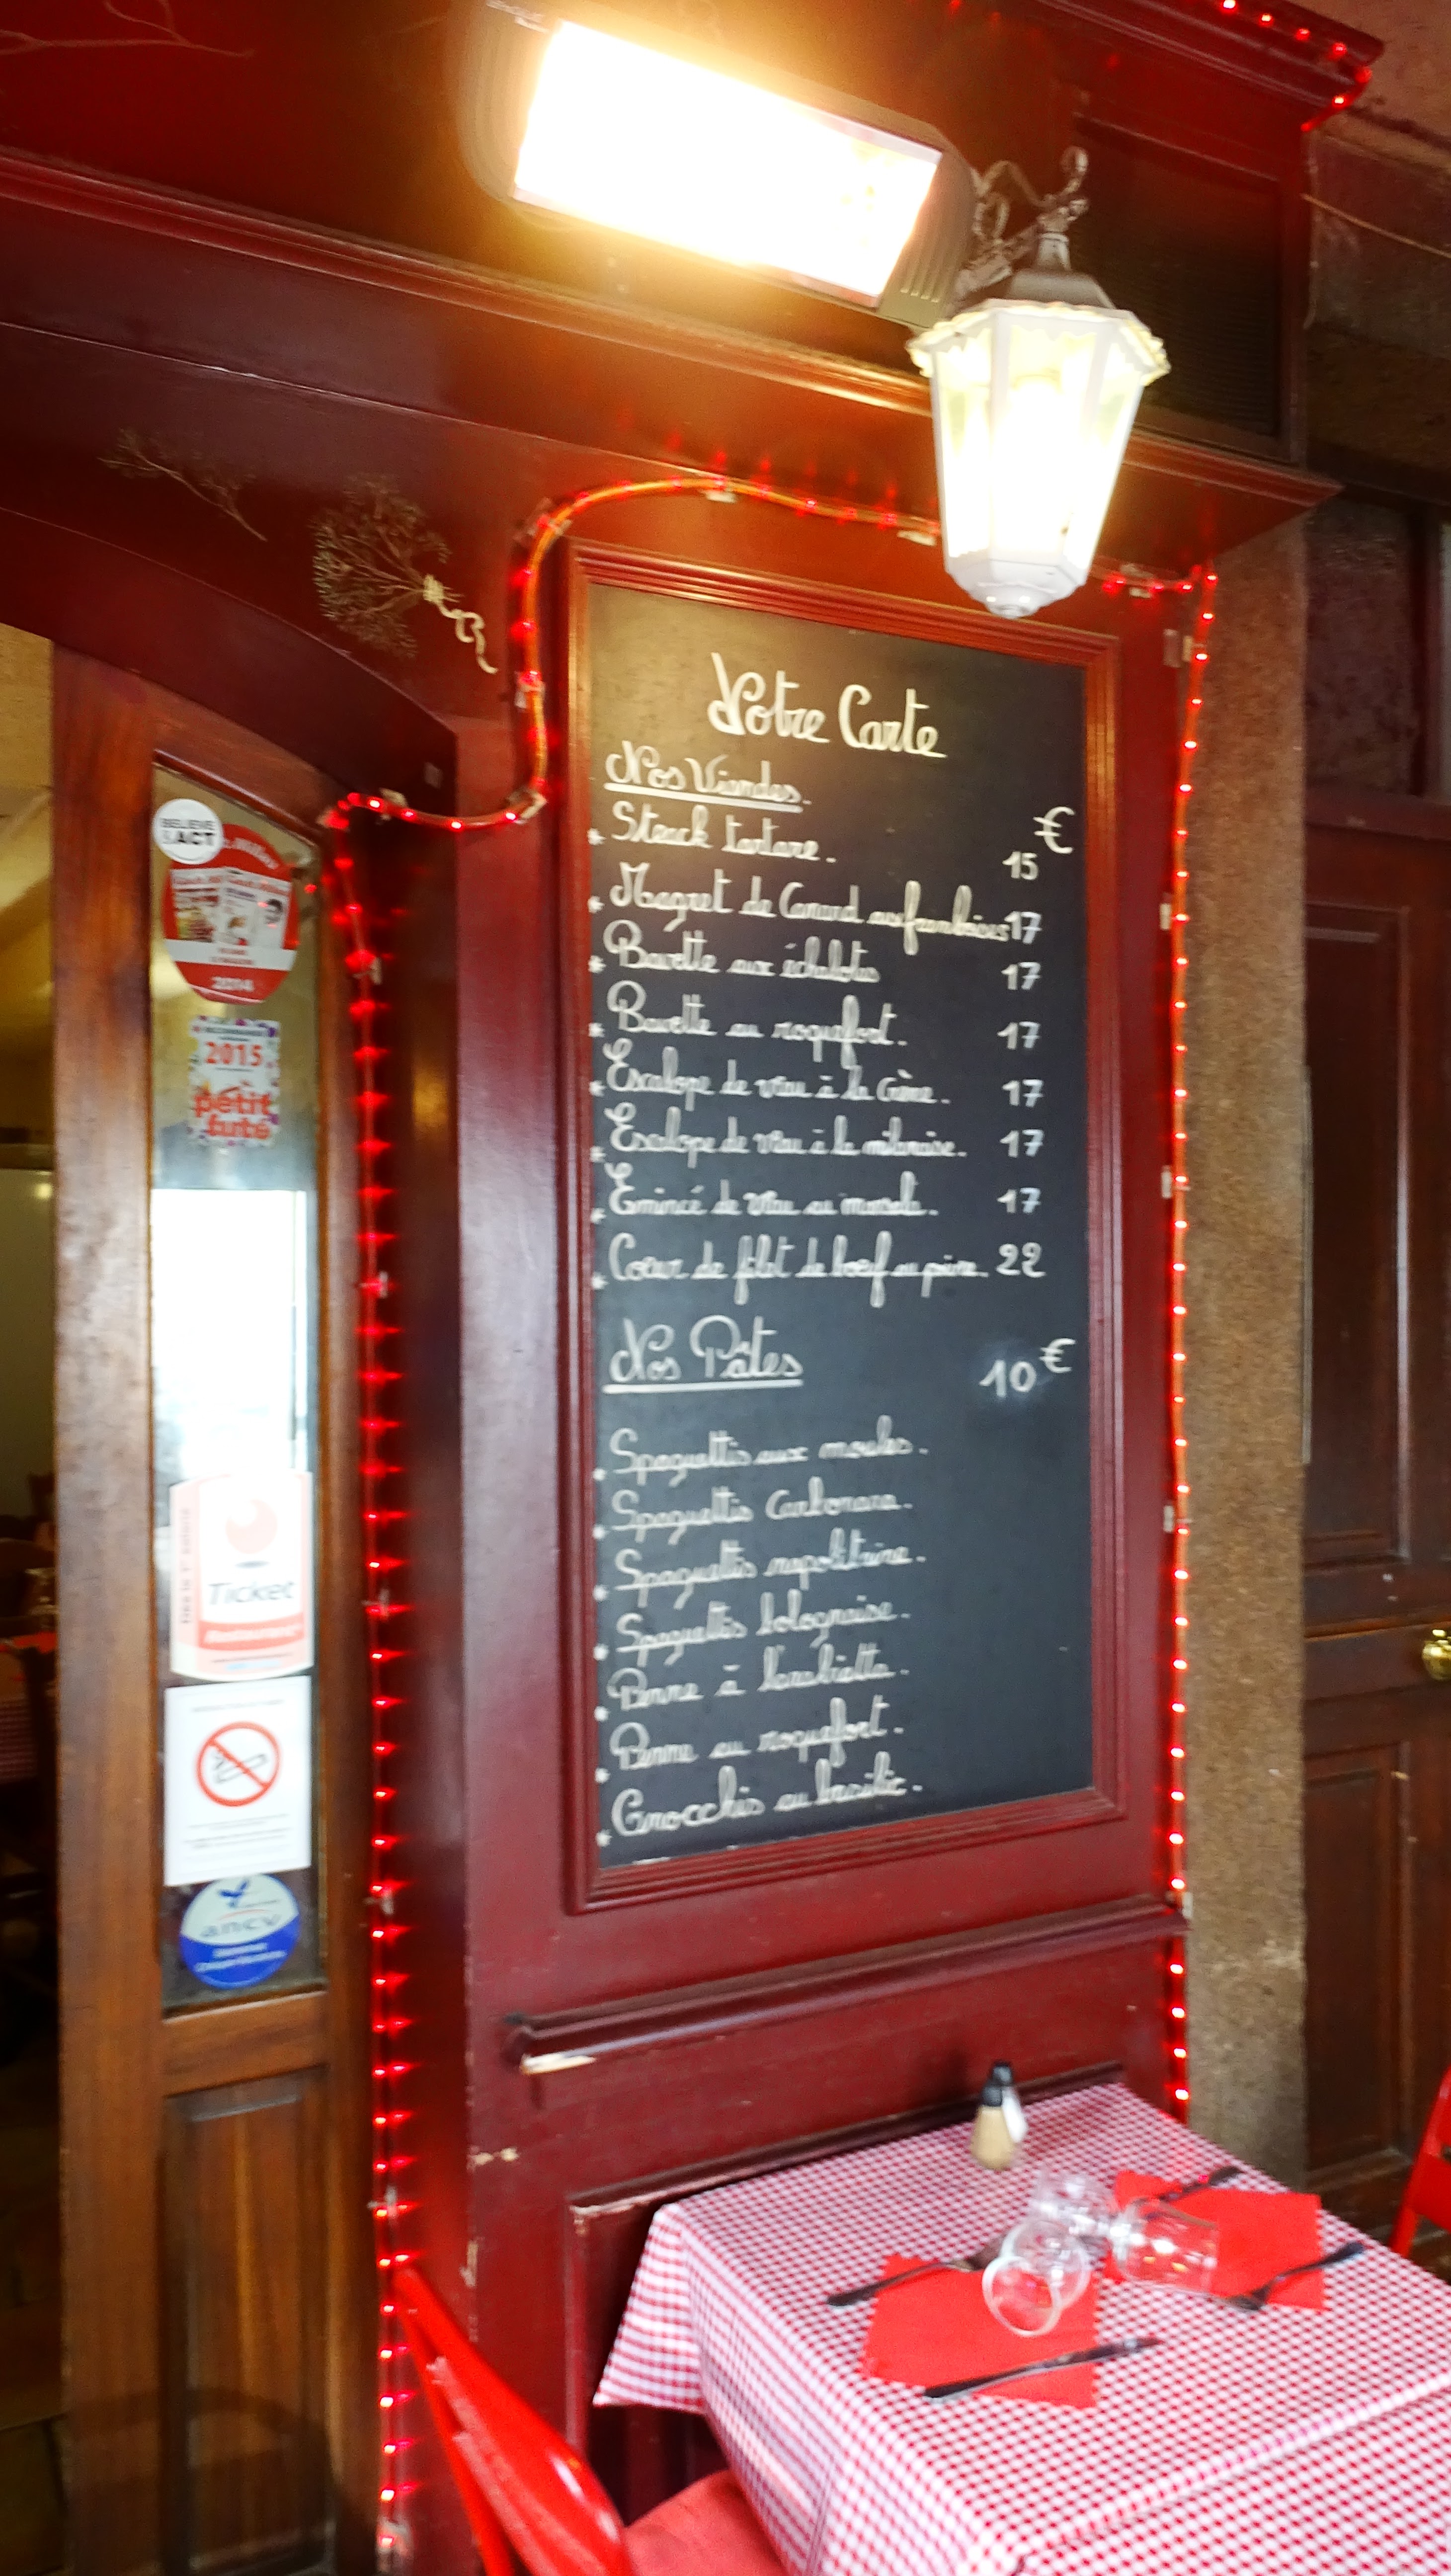 Notre Carte
Nos Viandes.
€
* Steack tartare. 15
* Magret de Canard aux framboises 17
* Bavette aux échalotes 17
* Bavette au roquefort. 17
* Escalope de veau à la crème. 17
* Escalope de veau à la milanaise. 17
* Emincé de veau au marsala. 17
* Coeur de filet de boeuf au poivre. 22
Nos Pâtes 10€
* Spaguettis aux moules.
* Spaguettis Carbonara.
* Spaguettis napolitaine.
* Spaguettis bolognaise.
* Penne à l'arabiatta.
* Penne au roquefort.
* Gnocchis au basilic.
BELIEVE
& ACT
2014
2015
petit
futé
Ticket
Restaurant
ancv